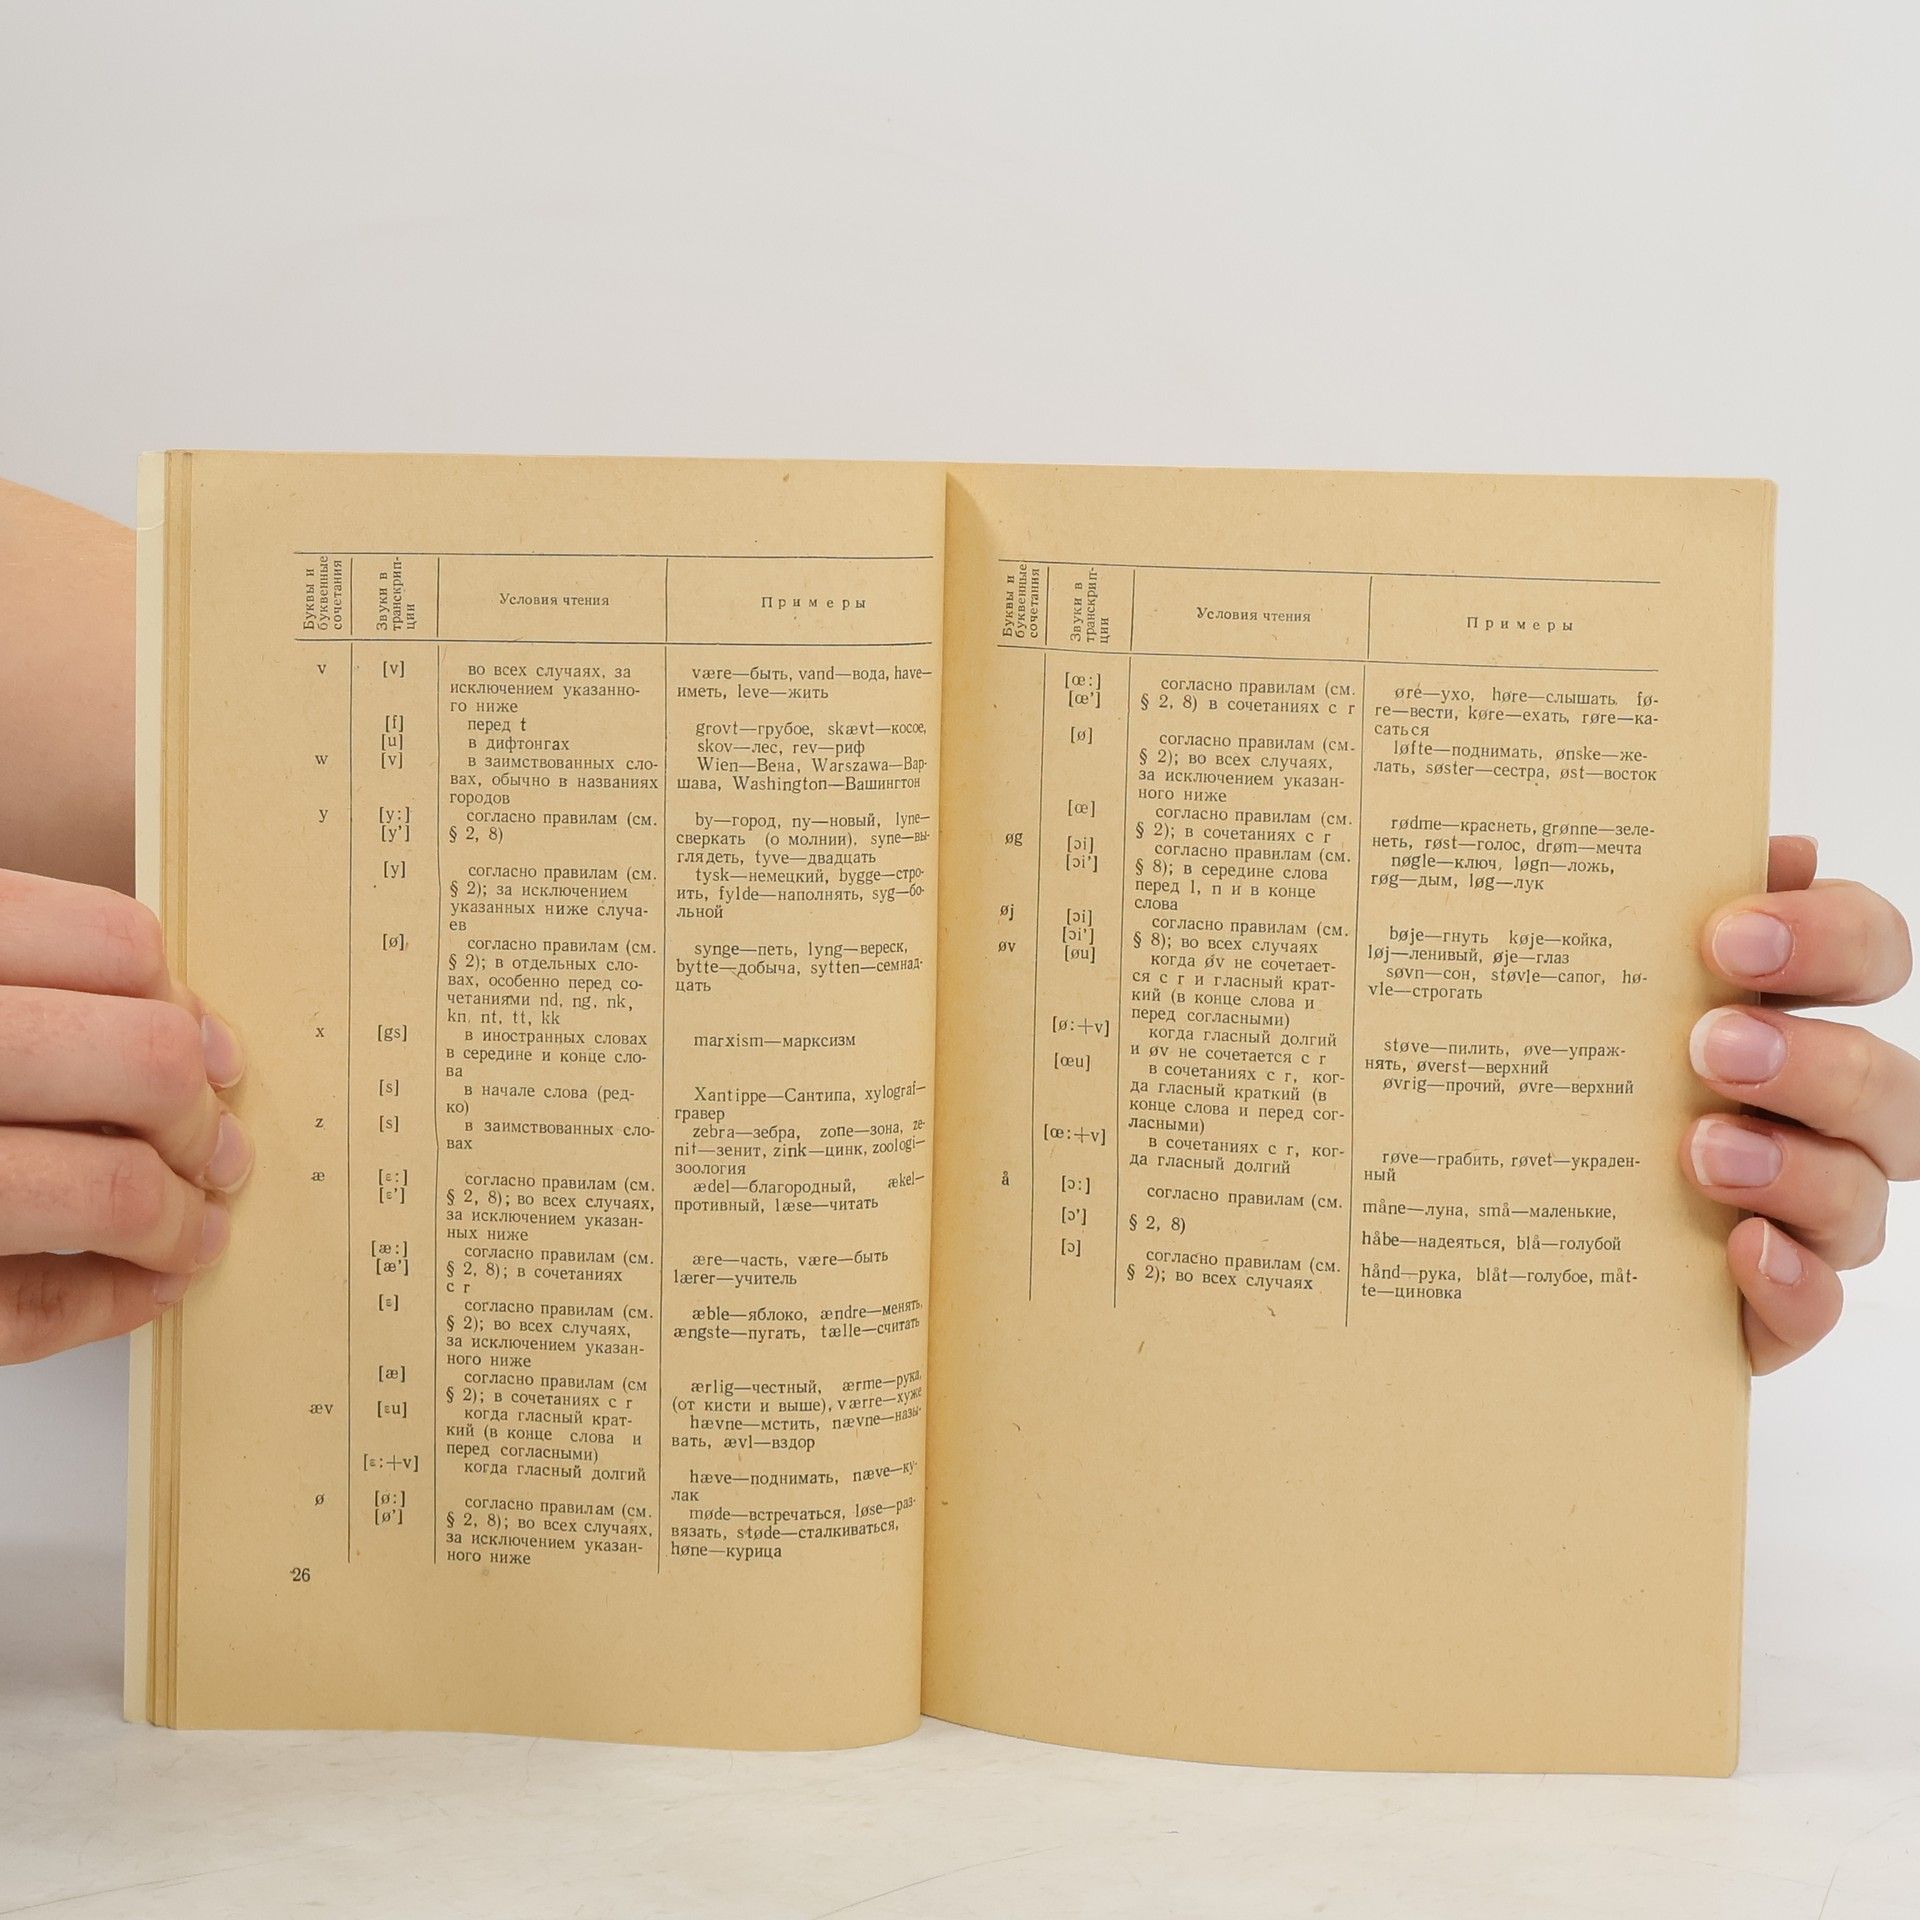 Буквы и буквенные сочетания
Звуки в транскрип-ции
Условия чтения
Примеры
v [v] во всех случаях, за være—быть, vand—вода, have—
исключением указанно- иметь, leve—жить
го ниже
[f] перед t grovt—грубое, skævt—косое,
[u] в дифтонгах skov—лес, rev—риф
w [v] в заимствованных сло- Wien—Вена, Warszawa—Вар-
вах, обычно в названиях шава, Washington—Вашингтон
городов
y [y:] согласно правилам (см. by—город, ny—новый, lyne—
[y’] § 2, 8) сверкать (о молнии), syne—вы-
глядеть, tyve—двадцать
[y] согласно правилам (см. tysk—немецкий, bygge—стро-
§ 2); за исключением ить, fylde—наполнять, syg—бо-
указанных ниже случа- льной
ев
[ø] согласно правилам (см. synge—петь, lyng—вереск,
§ 2); в отдельных сло- bytte—добыча, sytten—семнад-
вах, особенно перед со- цать
четаниями nd, ng, nk,
kn, nt, tt, kk
x [gs] в иностранных словах marxism—марксизм
в середине и конце сло-
ва
[s] в начале слова (ред- Xantippe—Сантипа, xylograf—
ко) гравер
z [s] в заимствованных сло- zebra—зебра, zone—зона, ze-
вах nit—зенит, zink—цинк, zoologi—
зоология
æ [ε:] согласно правилам (см. ædel—благородный, ækel—
[ε’] § 2, 8); во всех случаях, противный, læse—читать
за исключением указан-
ных ниже
[æ:] согласно правилам (см. ære—часть, være—быть
[æ’] § 2, 8); в сочетаниях lærer—учитель
с r
[ε] согласно правилам (см. æble—яблоко, ændre—менять,
§ 2); во всех случаях, ængste—пугать, tælle—считать
за исключением указан-
ного ниже
[æ] согласно правилам (см ærlig—честный, ærme—рука,
§ 2); в сочетаниях с r (от кисти и выше), værre—хуже
æv [εu] когда гласный крат- hævne—мстить, nævne—назы-
кий (в конце слова и вать, ævl—вздор
перед согласными)
[ε:+v] когда гласный долгий hæve—поднимать, næve—ку-
лак
ø [ø:] согласно правилам (см. møde—встречаться, løse—раз-
[ø’] § 2, 8); во всех случаях, вязать, støde—сталкиваться,
за исключением указан- høne—курица
ного ниже
26
Буквы и буквенные сочетания
Звуки в транскрип-ции
Условия чтения
Примеры
[œ:] согласно правилам (см. øre—ухо, høre—слышать, fø-
[œ’] § 2, 8) в сочетаниях с r re—вести, køre—ехать, røre—ка-
саться
[ø] согласно правилам (см. løfte—поднимать, ønske—же-
§ 2); во всех случаях, лать, søster—сестра, øst—восток
за исключением указан-
ного ниже
[œ] согласно правилам (см. rødme—краснеть, grønne—зеле-
§ 2); в сочетаниях с r неть, røst—голос, drøm—мечта
øg [ɔi] согласно правилам (см. nøgle—ключ, løgn—ложь,
[ɔi’] § 8); в середине слова røg—дым, løg—лук
перед l, n и в конце
слова
øj [ɔi] согласно правилам (см. bøje—гнуть køje—койка,
[ɔi’] § 8); во всех случаях løj—ленивый, øje—глаз
øv [øu] когда øv не сочетает- søvn—сон, støvle—сапог, hø-
ся с r и гласный крат- vle—строгать
кий (в конце слова и
перед согласными)
[ø:+v] когда гласный долгий støve—пилить, øve—упраж-
и øv не сочетается с r нять, øverst—верхний
[œu] в сочетаниях с r, ког- øvrig—прочий, øvre—верхний
да гласный краткий (в
конце слова и перед сог-
ласными)
[œ:+v] в сочетаниях с r, ког- røve—грабить, røvet—украден-
да гласный долгий ный
å [ɔ:] согласно правилам (см. måne—луна, små—маленькие,
[ɔ’] § 2, 8) håbe—надеяться, blå—голубой
[ɔ] согласно правилам (см. hånd—рука, blåt—голубое, måt-
§ 2); во всех случаях te—циновка